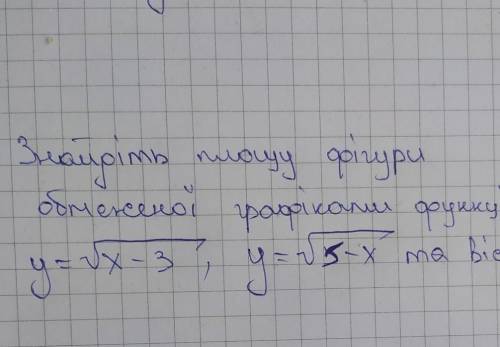 Знайдіть площу фігури
обмеженої графіками функці
y=√x-3, y=√5-x та віс